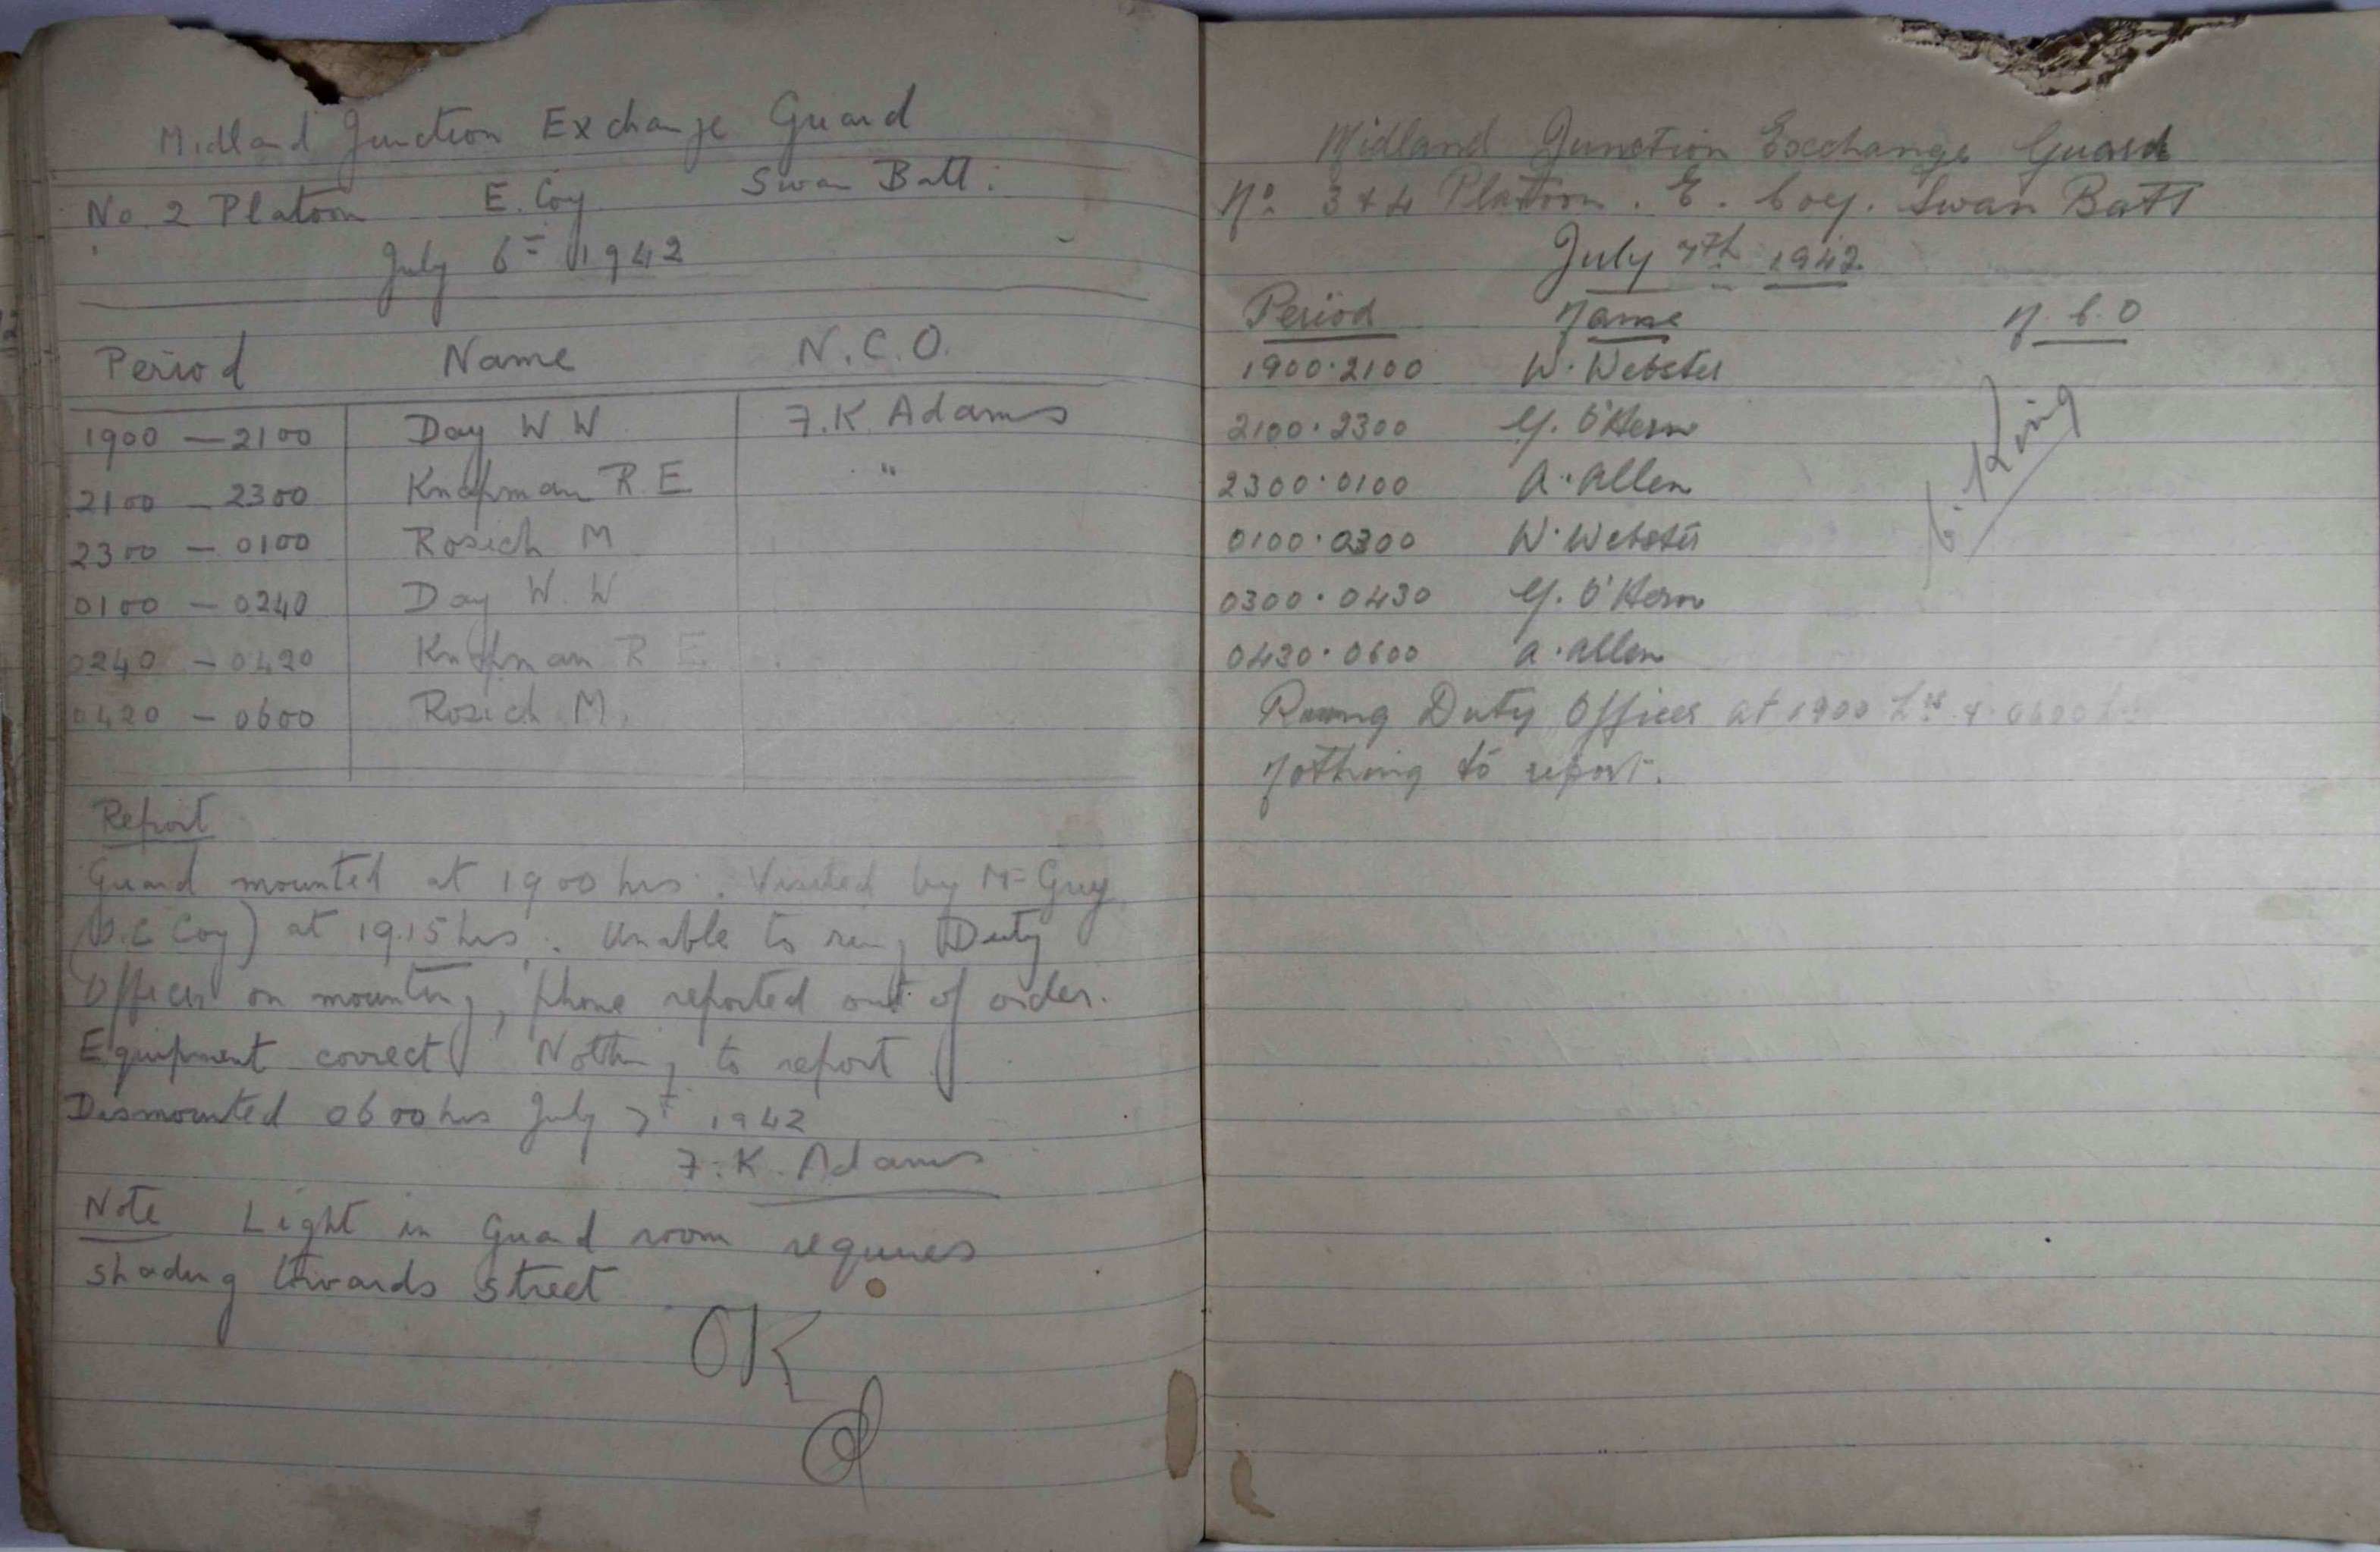 Midland Junction Exchange Guard
No. 2 Platoon E. Coy Swan Batt:
July 6th 1942
Period Name N.C.O.
1900 — 2100 Day W W F.K. Adams
2100 — 2300 Knapman R E "
2300 — 0100 Rosich M
0100 — 0240 Day W. W
0240 — 0420 Knapman R E
0420 — 0600 Rosich M.
Report
Guard mounted at 1900 hrs. Visited by Mr Guy
(O.C Coy) at 1915 hrs. Unable to ring Duty
Officer on mounting, phone reported out of order.
Equipment correct Nothing to report
Dismounted 0600 hrs July 7th 1942
F. K. Adams
Note Light in Guard room requires
shading towards street
OK
Midland Junction Exchange Guard
No 3 & 4 Platoon. E. Coy. Swan Batt
July 7th 1942
Period Name N.C.O
1900.2100 W. Webster
2100.2300 O'Hern
2300.0100 A. Allen
C. King
0100.0300 W. Webster
0300.0430 O'Hern
0430.0600 A. Allen
Duty Officer at 1900 hrs & 0600
Nothing to report.